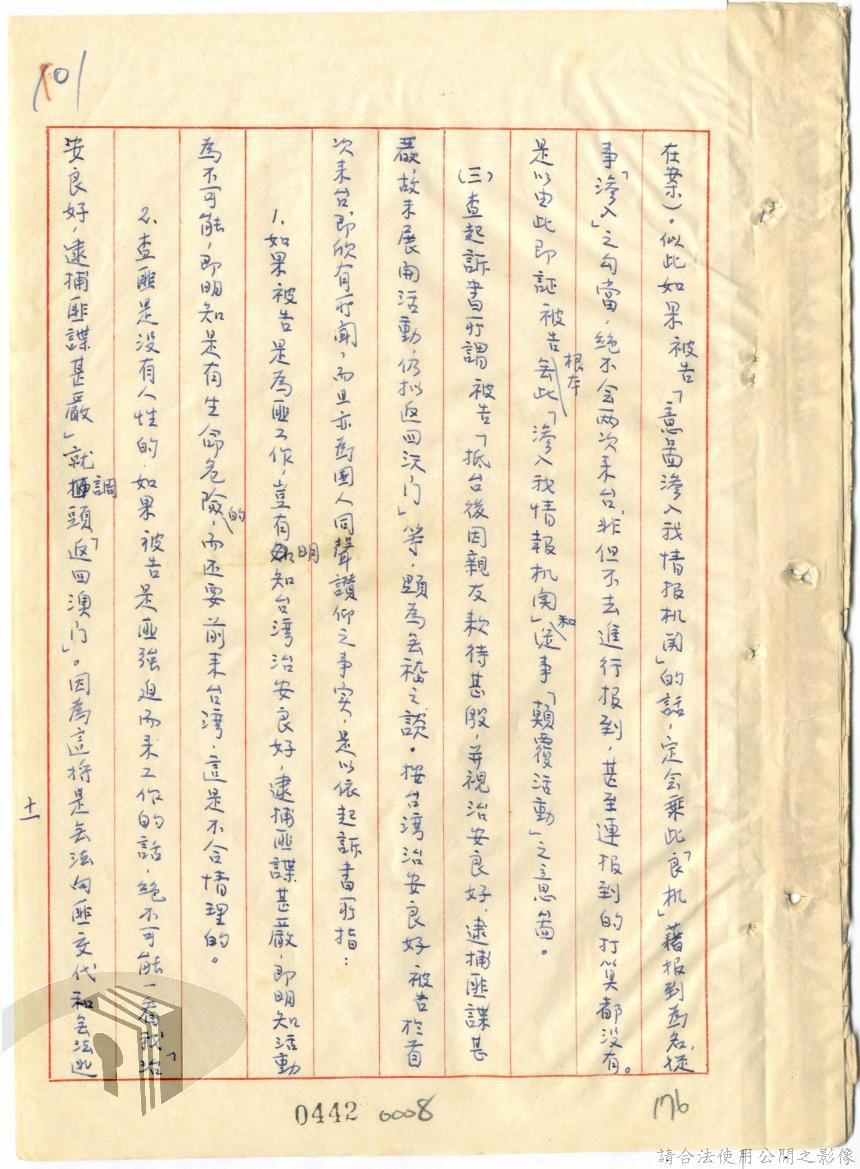 101
在案)。似此如果被告「意啚滲入我情报机関」的話，定会乘此「良机」藉报到為名，從
事「滲入」之勾當，絕不会两次来台，非但不去進行报到，甚至連报到的打算都没有。
是以由此即証被告根本無此「滲入我情報机関」和從事「顛覆活動」之意啚。
(三)查起訴書所謂被告「抵台後因親友款待甚殷，并視治安良好，逮捕匪諜甚
嚴，故未展開活動，仍拟返回澳门」等，顕為無稽之談。按台湾治安良好，被告於首
次来台，即欣有所闻，而且亦為國人同聲讚仰之事实，是以依起訴書所指：
1.如果被告是為匪工作，豈有明知台湾治安良好，逮捕匪諜甚嚴，即明知活動
為不可能，即明知是有生命危險的，而还要前来台湾，這是不合情理的。
2.查匪是没有人性的，如果被告是匪強迫而来工作的話，絕不可能一看我「治
安良好，逮捕匪諜甚嚴」就調頭「返回澳门」。因為這将是無法向匪交代和無法逃
十一
0442
0008
176
請合法使用公開之影像